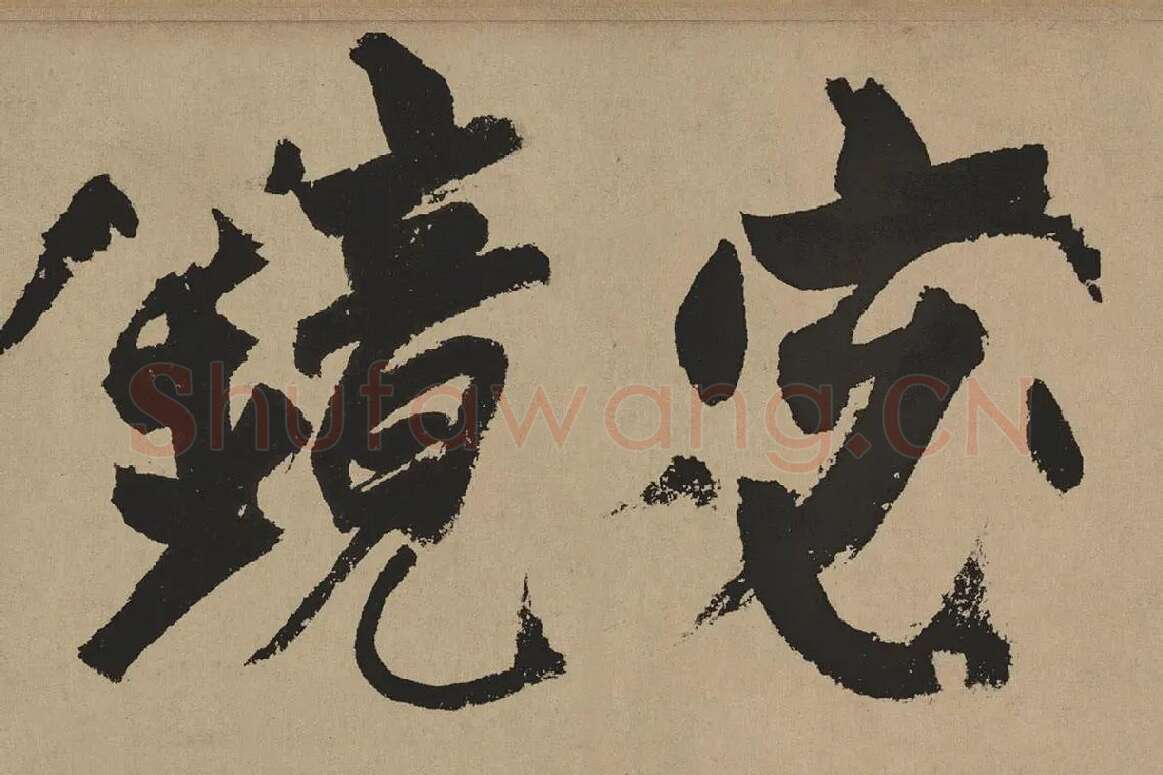 宓鏡
Shufawang.CN